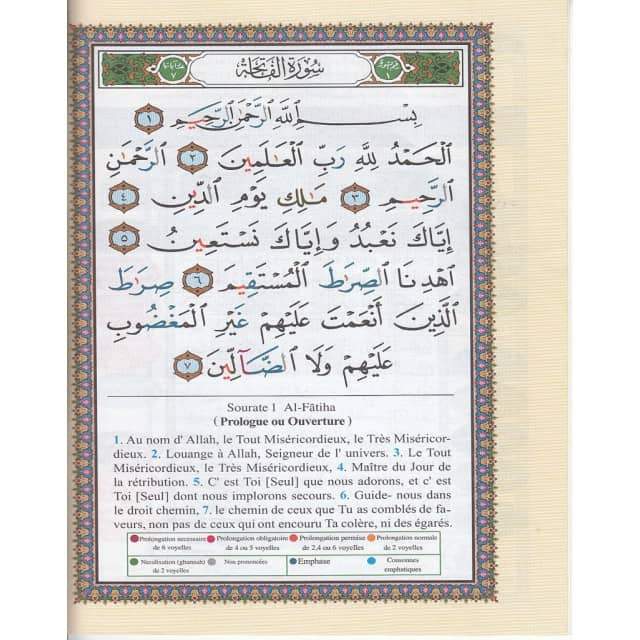 سُورَةُ الفَاتِحَة
بِسْمِ ٱللَّهِ ٱلرَّحْمَٰنِ ٱلرَّحِيمِ ١
ٱلْحَمْدُ لِلَّهِ رَبِّ ٱلْعَٰلَمِينَ ٢ ٱلرَّحْمَٰنِ
ٱلرَّحِيمِ ٣ مَٰلِكِ يَوْمِ ٱلدِّينِ ٤
إِيَّاكَ نَعْبُدُ وَإِيَّاكَ نَسْتَعِينُ ٥
ٱهْدِنَا ٱلصِّرَٰطَ ٱلْمُسْتَقِيمَ ٦ صِرَٰطَ
ٱلَّذِينَ أَنْعَمْتَ عَلَيْهِمْ غَيْرِ ٱلْمَغْضُوبِ
عَلَيْهِمْ وَلَا ٱلضَّآلِّينَ ٧
Sourate 1 Al-Fātiha
( Prologue ou Ouverture )
1. Au nom d' Allah, le Tout Miséricordieux, le Très Miséricor-
dieux. 2. Louange à Allah, Seigneur de l' univers. 3. Le Tout
Miséricordieux, le Très Miséricordieux, 4. Maître du Jour de
la rétribution. 5. C' est Toi [Seul] que nous adorons, et c' est
Toi [Seul] dont nous implorons secours. 6. Guide- nous dans
le droit chemin, 7. le chemin de ceux que Tu as comblés de fa-
veurs, non pas de ceux qui ont encouru Ta colère, ni des égarés.
Prolongation necessaire de 6 voyelles
Prolongation obligatoire de 4 ou 5 voyelles
Prolongation permise de 2,4 ou 6 voyelles
Prolongation normale de 2 voyelles
Nasalisation (ghunnah) de 2 voyelles
Non prononcées
Emphase
Consonnes emphatiques